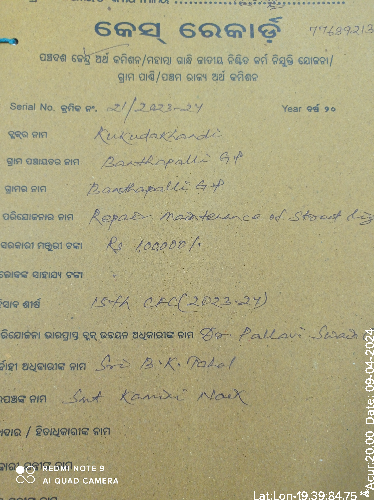 କେସ୍ ରେକର୍ଡ଼
ପଞ୍ଚଦଶ କେନ୍ଦ୍ର ଅର୍ଥ କମିଶନ/ମହାତ୍ମା ଗାନ୍ଧି ଜାତୀୟ ନିଶ୍ଚିତ କର୍ମ ନିଯୁକ୍ତି ଯୋଜନା/
ଗ୍ରାମ ପାଣ୍ଠି/ପଞ୍ଚମ ରାଜ୍ୟ ଅର୍ଥ କମିଶନ
Serial No. କ୍ରମିକ ନଂ. 21/2023-24 Year ବର୍ଷ ୨୦
ବ୍ଲକ୍‌ର ନାମ Kukudakhandi
ଗ୍ରାମ ପଞ୍ଚାୟତର ନାମ Banthapalli GP
ଗ୍ରାମର ନାମ Banthapalli GP
ପରିଯୋଜନାର ନାମ Repair Maintenance of Street
ସରକାରୀ ମଞ୍ଜୁରୀ ଟଙ୍କା Rs 100000/-
ସାହାଯ୍ୟ ଟଙ୍କା
ହିସାବ ଶୀର୍ଷ 15th CFC (2023-24)
ଭାରପ୍ରାପ୍ତ ବ୍ଲକ୍ ଉନ୍ନୟନ ଅଧିକାରୀଙ୍କ ନାମ Pallavi
ଅଧିକାରୀଙ୍କ ନାମ Sri B.K.
ନାମ Smt Kamini Naik
/ ହିତାଧିକାରୀଙ୍କ ନାମ
REDMI NOTE 9
AI QUAD CAMERA
Acur:20.00 Date: 09-04-2024
Lat:Lon-19.39:84.75